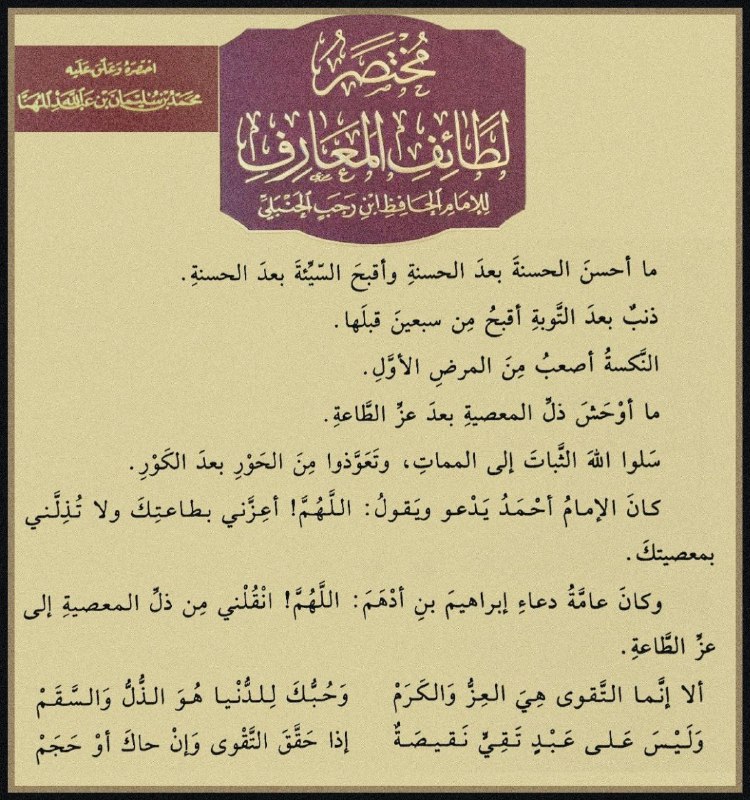 مُخْتَصَرُ
لَطَائِفِ المَعَارِفِ
لِلإِمَامِ الحَافِظِ ابْنِ رَجَبٍ الحَنْبَلِيِّ
اختصرهُ وَعلق عَليه
محمّد بْن سُليْمَان بْن عَبدالله المهنّا
ما أحسنَ الحسنةَ بعدَ الحسنةِ وأقبحَ السّيِّئةَ بعدَ الحسنةِ.
ذنبٌ بعدَ التَّوبةِ أقبحُ مِن سبعينَ قبلَها.
النَّكسةُ أصعبُ مِنَ المرضِ الأوَّلِ.
ما أوْحَشَ ذلِّ المعصيةِ بعدَ عزِّ الطَّاعةِ.
سَلوا اللهَ الثَّباتَ إلى المماتِ، وتَعَوَّذوا مِنَ الحَوْرِ بعدَ الكَوْرِ.
كانَ الإمامُ أحْمَدُ يَدْعو ويَقولُ: اللَّهُمَّ! أعِزَّني بطاعتِكَ ولا تُذِلَّني
بمعصيتكَ.
وكانَ عامَّةُ دعاءِ إبراهيمَ بنِ أدْهَمَ: اللَّهُمَّ! انْقُلْني مِن ذلِّ المعصيةِ إلى
عزِّ الطَّاعةِ.
ألا إنَّما التَّقوى هِيَ العِزُّ وَالكَرَمْ وَحُبُّكَ لِلدُّنْيا هُوَ الذُّلُّ وَالسَّقَمْ
وَلَيْسَ عَلى عَبْدٍ تَقِيٍّ نَقيصَةٌ إذا حَقَّقَ التَّقْوى وَإنْ حاكَ أوْ حَجَمْ